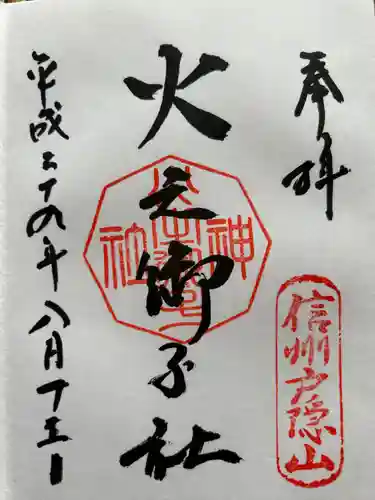 奉拝
信州戸隠山
火之御子社
神社
平成二十九年八月十三日